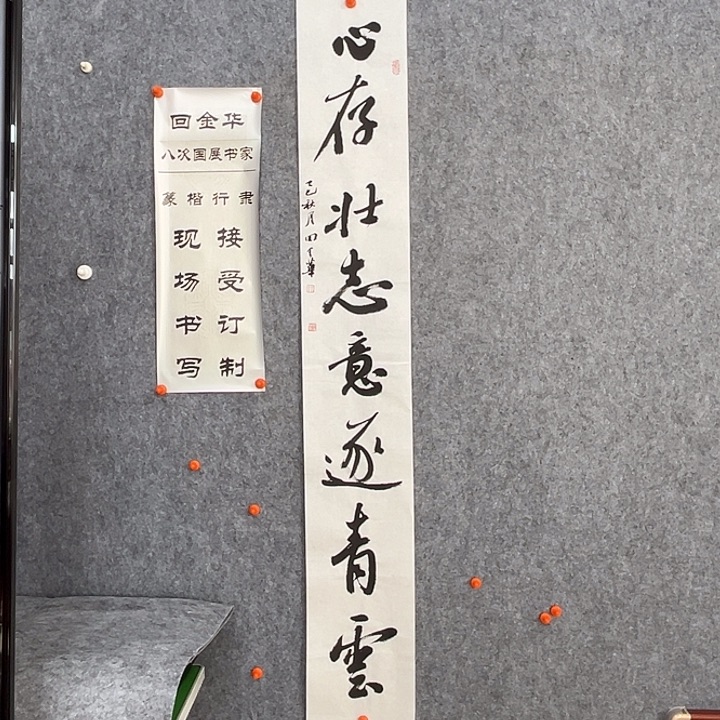 回金华
八次国展书家
篆楷行隶
现场书写
接受订制
心存壮志意遂青雲
乙巳秋月回金華